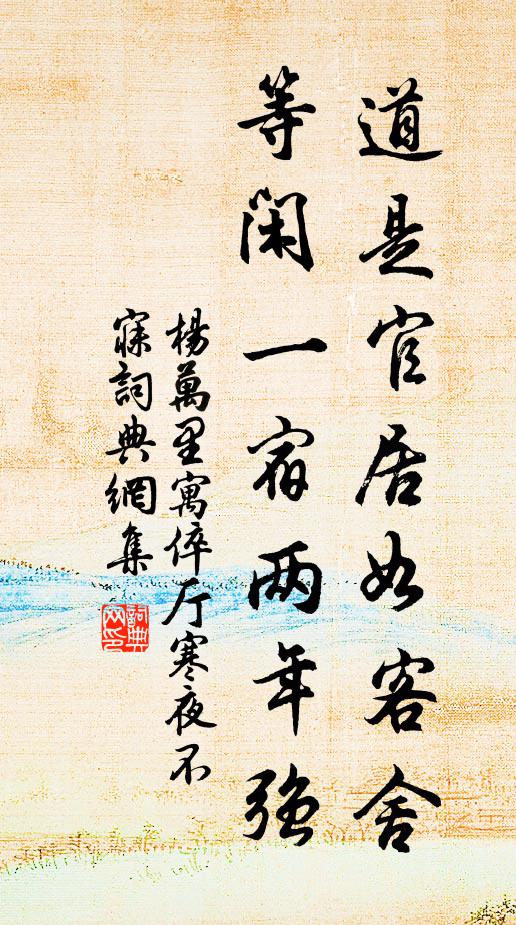 道是官居如客舍
等闲一宿两年強
楊萬里寓倅厅寒夜不
寐詞典網集
詞典
网印